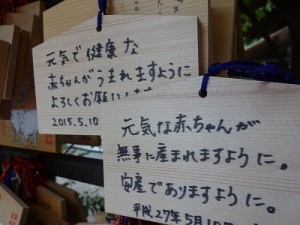 元気で健康な
赤ちゃんがうまれますように
よろしくお願い
2015.5.10
元気な赤ちゃんが
無事に産まれますように。
安産でありますように。
平成27年5月10日